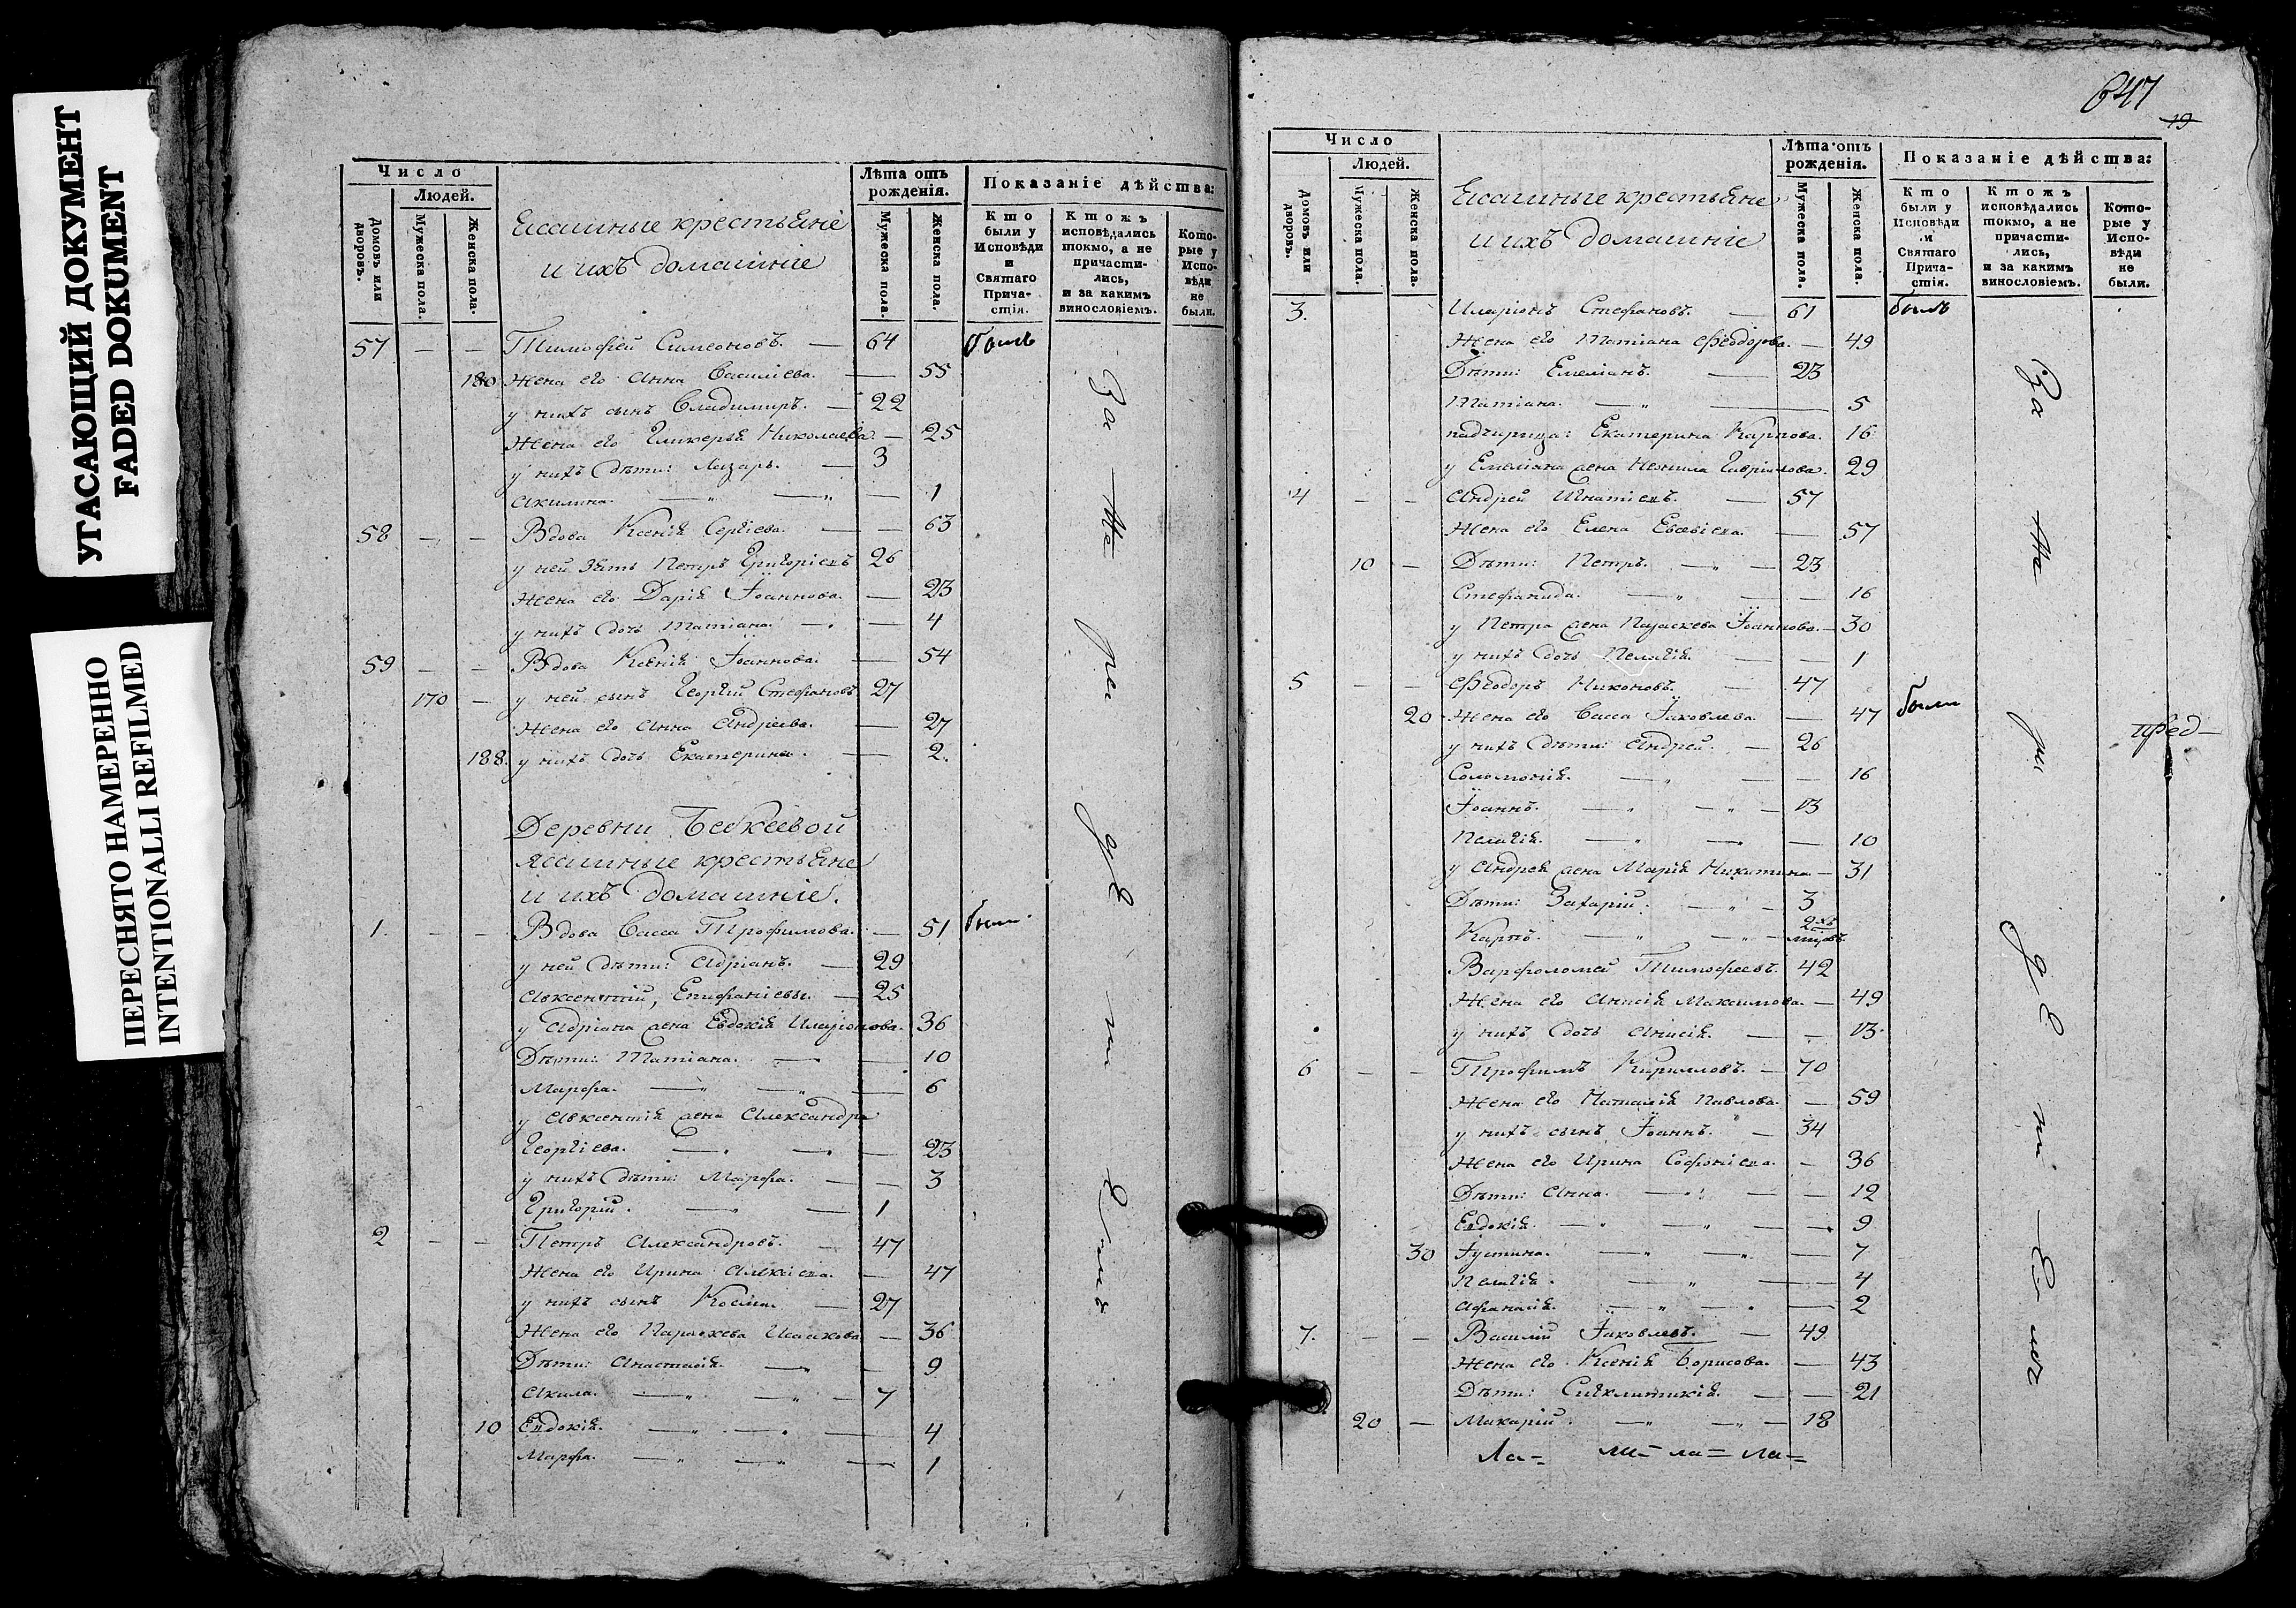 УГАСАЮЩИЙ ДОКУМЕНТ
FADED DOKUMENT
ПЕРЕСНЯТО НАМЕРЕННО
INTENTIONALLI REFILMED
Число
Людей.
Домовъ или дворовъ.
Мужеска пола.
Женска пола.
Ясашные крестьяне
и ихъ домашніе
Лѣта отъ рожденія.
Мужеска пола.
Женска пола.
Показаніе дѣйства:
Кто были у Исповѣди и Святаго Прича-стія.
Ктожъ исповѣдались токмо, а не причасти-лись, и за какимъ винословіемъ.
Кото-рые у Испо-вѣди не были.
57 — — Тимофей Симеоновъ. — 64 были
180 Жена его Анна Василіева. — 55
у нихъ сынъ Владимиръ. — 22
Жена его Гликерья Николаева. — 25
у нихъ дѣти: Лазарь. — 3
Акилина. — „ — „ — 1
58 — — Вдова Ксенія Сергіева. — — 63
у ней зять Петръ Григоріевъ 26
Жена его Дарія Іоаннова. — 23
у нихъ дочь Татіана. — 4
59 — — Вдова Ксенія Іоаннова. — 54
170 — у ней сынъ Георгій Стефановъ 27
Жена его Анна Андреева. — 27
188. у нихъ дочь Екатерина. — 2.
Деревни Бебкеевой
ясашные крестьяне
и ихъ домашніе.
1. — — Вдова Васса Трофимова. — 51 были
у ней дѣти: Адріанъ. — 29
Авксентій, Епифаніевы. — 25
у Адріана жена Евдокія Иларіонова. 36
Дѣти: Татіана. — — 10
Марфа. — „ — „ — 6
у Авксентія жена Александра
Георгіева. — — — 23
у нихъ дѣти: Марфа. — — 3
Григорій. — „ — 1
2 — — Петръ Александровъ. — 47
Жена его Ирина Алексіева. — 47
у нихъ сынъ Косма. — 27
Жена его Параскева Исаакова — 36
Дѣти: Анастасія. — „ — 9
Акила. — „ — „ — 7
10 Евдокія. — „ — — 4
Марфа. — „ — „ — 1
За не ра дѣ ні емъ
647
19
Число
Людей.
Домовъ или дворовъ.
Мужеска пола.
Женска пола.
Ясашные крестьяне
и ихъ домашніе
Лѣта отъ рожденія.
Мужеска пола.
Женска пола.
Показаніе дѣйства:
Кто были у Исповѣди и Святаго Прича-стія.
Ктожъ исповѣдались токмо, а не причасти-лись, и за какимъ винословіемъ.
Кото-рые у Испо-вѣди не были.
3. Иларіонъ Стефановъ. — 61 были
Жена его Татіана Феодорова. — 49
Дѣти: Емеліанъ. — 23
Татіана. — „ — 5
падчирица: Екатерина Карпова. 16
у Емеліана жена Неонила Гавріилова. 29
4 — — Андрей Игнатіевъ. — 57
Жена его Елена Евсевіева. — 57
10 — Дѣти: Петръ. — „ — 23
Стефанида. — „ — — 16
у Петра жена Параскева Іоаннова. — 30
у нихъ дочь Пелагія. — — 1
5 — — Феодоръ Никоновъ. — 47
20 Жена его Васса Іаковлева. — 47 были
у нихъ дѣти: Андрей. — 26
Соломонія. — „ — — 16
Іоаннъ. — „ — „ — 13
Пелагія. — „ — „ — 10
у Андрея жена Марія Никитина — 31
Дѣти: Захарій. — „ — 3
Карпъ. — „ — „ —
Варфоломей Тимофеевъ. 42
Жена его Анисія Максимова. — 49
у нихъ дочь Анисія. — — 13.
6 — — Трофимъ Кирилловъ. — 70
Жена его Наталія Павлова. — 59
у нихъ сынъ Іоаннъ. — 34
Жена его Ирина Софоніева. — 36
Дѣти: Анна. — „ — — 12
Евдокія. — „ — „ — 9
30 Іустина. — „ — „ — 7
Пелагія. — „ — 4
Афанасія. — „ — — 2
7. — — Василій Іаковлевъ. — 49
Жена его Ксенія Борисова. — 43
Дѣти: Сигклитикія. — — 21
20 — Макарій. — „ — „ — 18
За не ра дѣ ні емъ